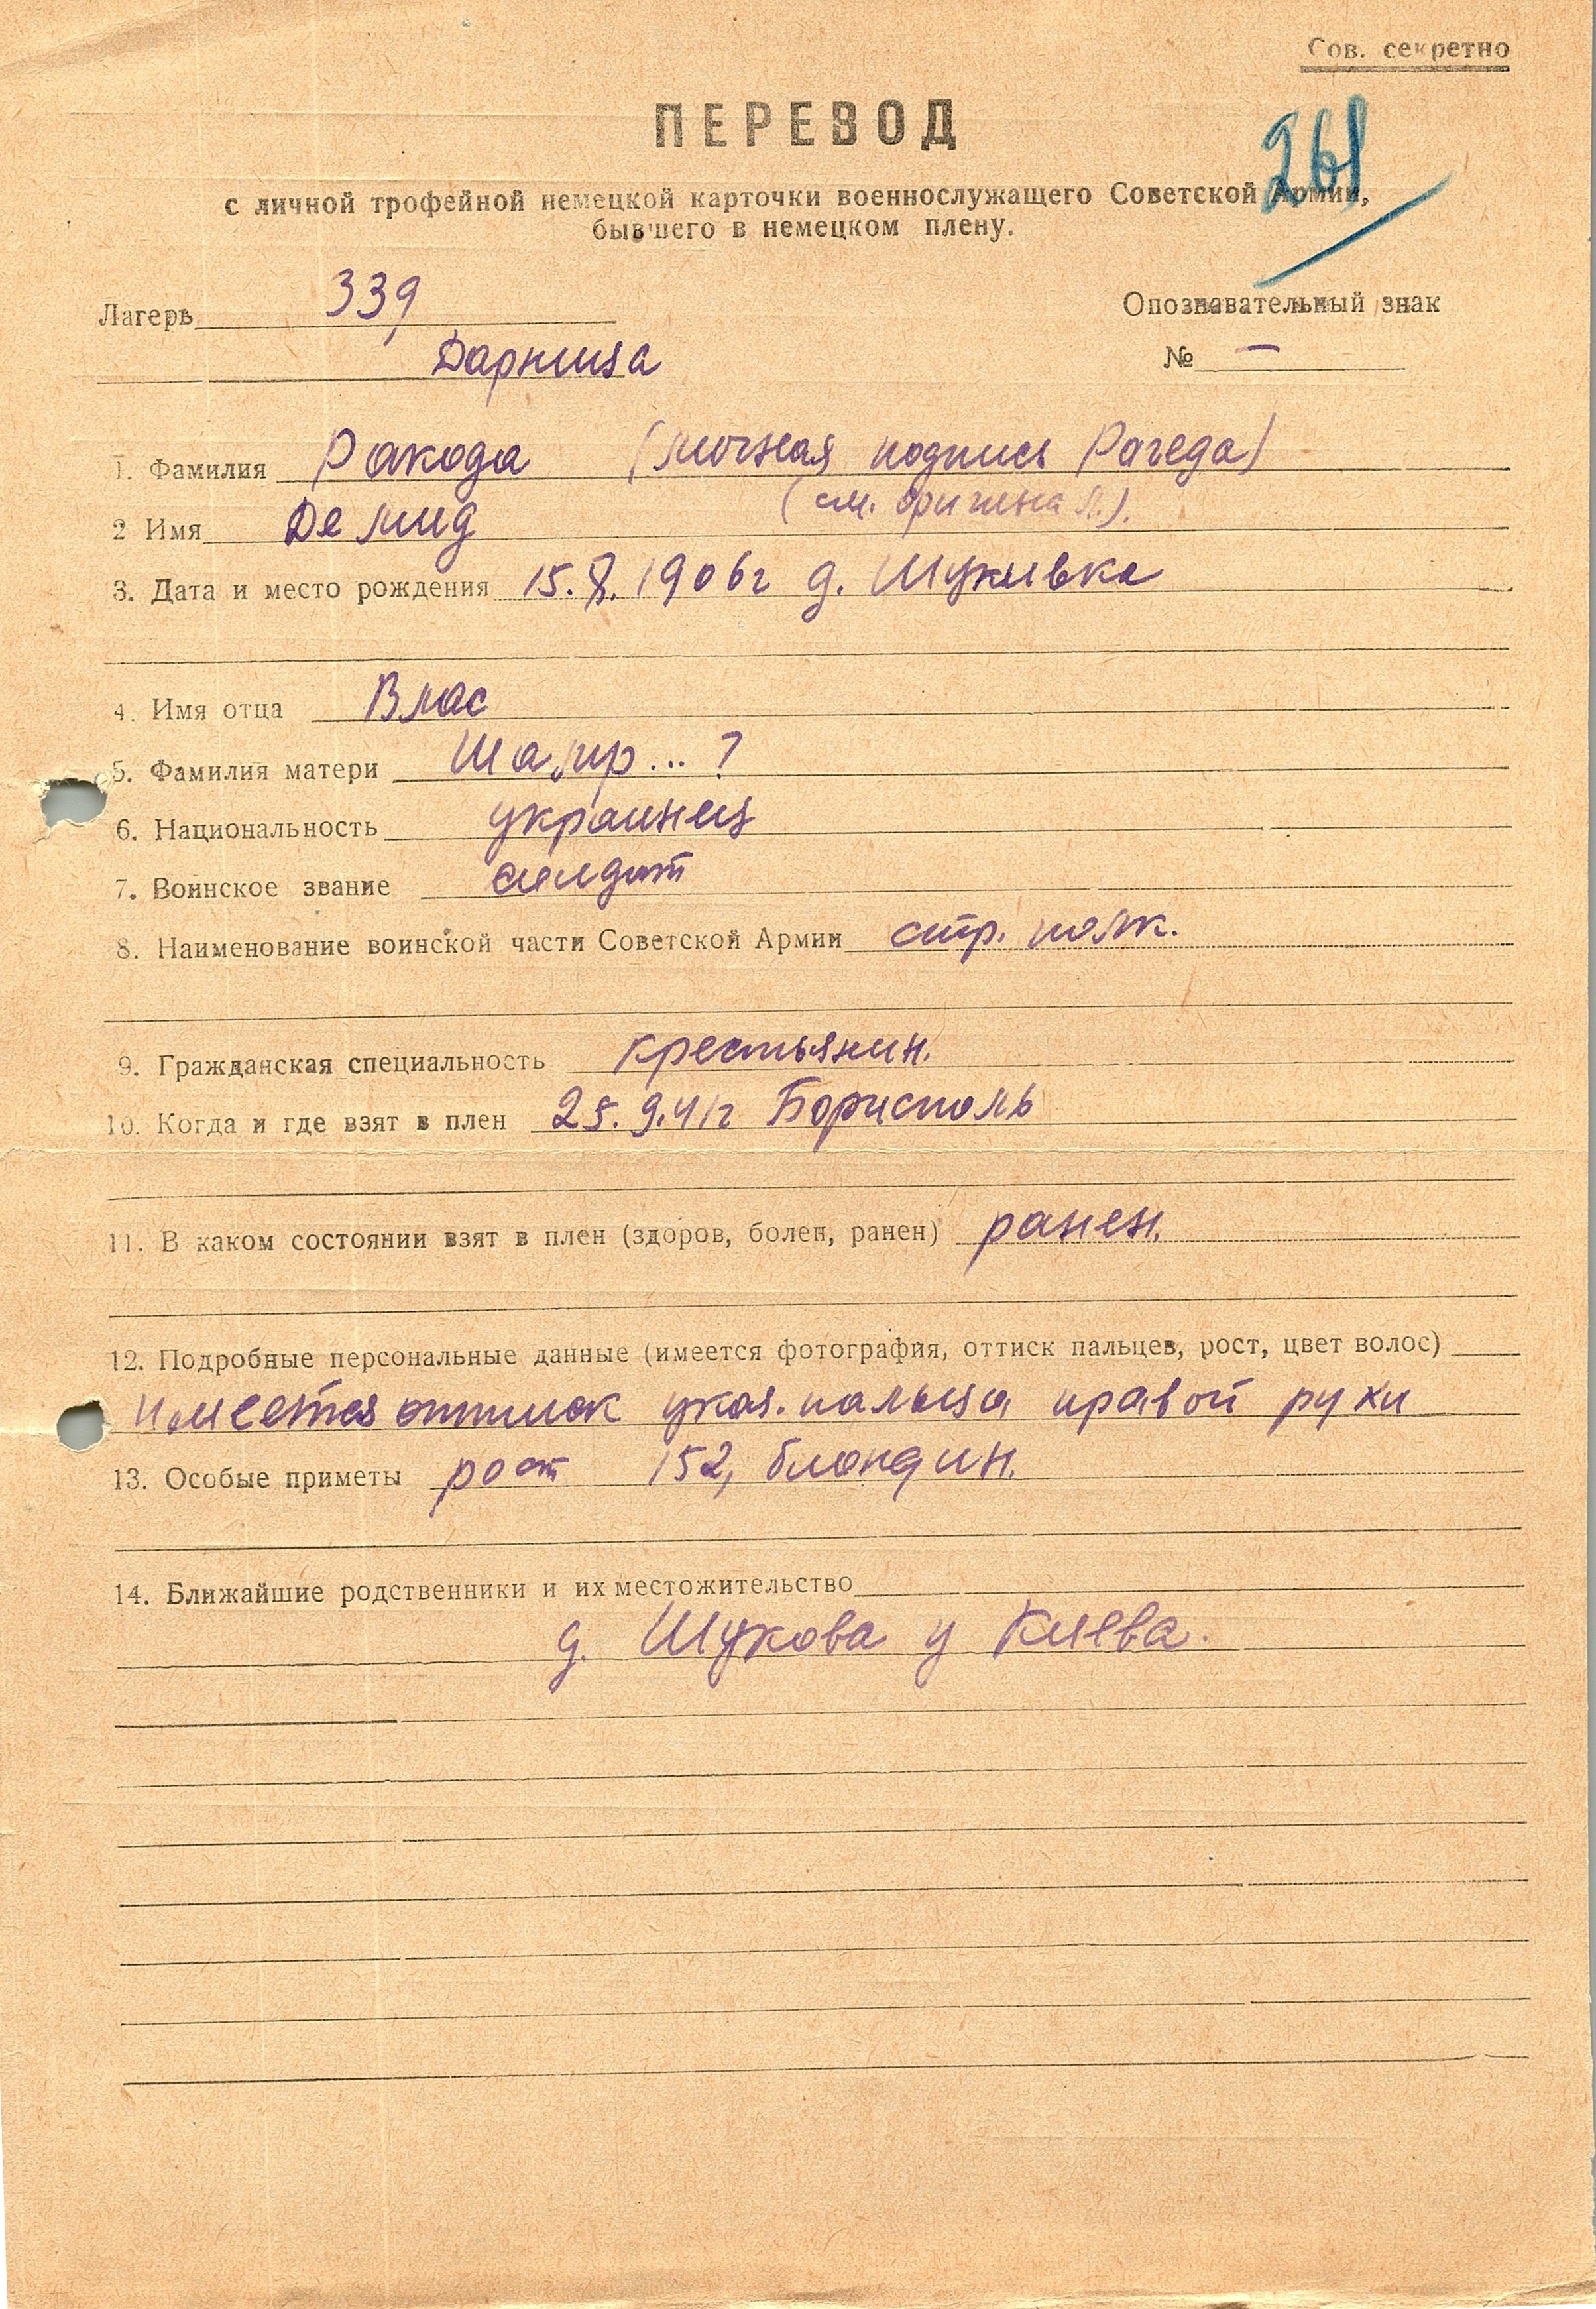 Сов. секретно
ПЕРЕВОД
261
с личной трофейной немецкой карточки военнослужащего Советской Армии,
бывшего в немецком плену.
Лагерь 339
Опознавательный знак
Дарница
№ —
1. Фамилия Ракода (личная подпись Рагеда)
(см. оригинал).
2 Имя Демид
3. Дата и место рождения 15.8.1906г д. Шукивка
4. Имя отца Влас
5. Фамилия матери ... ?
6. Национальность украинец
7. Воинское звание солдат
8. Наименование воинской части Советской Армии стр. полк.
9. Гражданская специальность крестьянин.
10. Когда и где взят в плен 25.9.41г Борисполь
11. В каком состоянии взят в плен (здоров, болен, ранен) ранен.
12. Подробные персональные данные (имеется фотография, оттиск пальцев, рост, цвет волос)
имеется оттиск указ. пальца правой руки
13. Особые приметы рост 152, блондин.
14. Ближайшие родственники и их местожительство
д. Шукова у Киева.